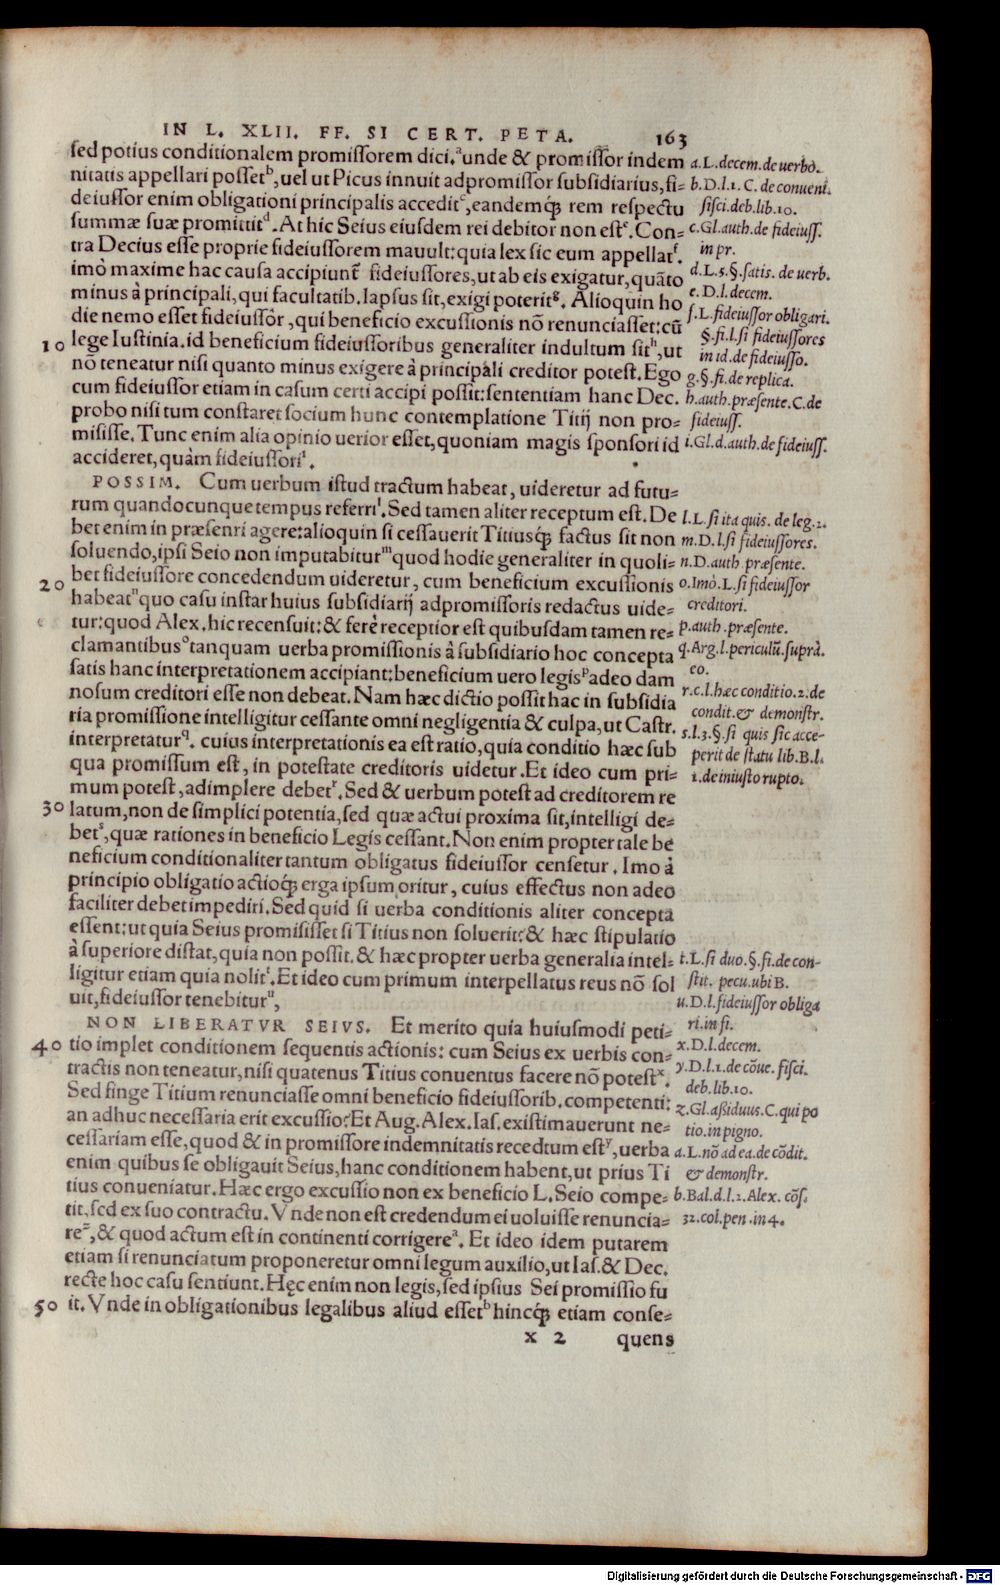 IN L. XLII. FF. SI CERT. PETA. 163
sed potius conditionalem promissorem dici.ᵃ unde & promissor indem
nitatis appellari possetᵇ, uel ut Picus innuit adpromissor subsidiarius, fi=
deiussor enim obligationi principalis acceditᶜ, eandemq́; rem respectu
summæ suæ promittitᵈ. At hic Seius eiusdem rei debitor non estᵉ. Con=
tra Decius esse proprie fideiussorem mauult: quia lex sic eum appellatᶠ.
imò maxime hac causa accipiunt̃ fideiussores, ut ab eis exigatur, quãto
minus à principali, qui facultatib. lapsus sit, exigi poteritᵍ. Alioquin ho
die nemo esset fideiussor, qui beneficio excussionis nõ renunciasset: cũ
10 lege Iustinia. id beneficium fideiussoribus generaliter indultum sitʰ, ut
nõ teneatur nisi quanto minus exigere à principali creditor potest. Ego
cum fideiussor etiam in casum certi accipi possit: sententiam hanc Dec.
probo nisi tum constaret socium hunc contemplatione Titij non pro=
misisse. Tunc enim alia opinio uerior esset, quoniam magis sponsori id
accideret, quàm fideiussoriⁱ.
POSSIM. Cum uerbum istud tractum habeat, uideretur ad futu=
rum quandocunque tempus referriˡ. Sed tamen aliter receptum est. De
bet enim in præsenri agere: alioquin si cessauerit Titiusq́; factus sit non
soluendo, ipsi Seio non imputabiturᵐ quod hodie generaliter in quoli=
20 bet fideiussore concedendum uideretur, cum beneficium excussionis
habeatⁿ quo casu instar huius subsidiarij adpromissoris redactus uide=
tur: quod Alex. hic recensuit: & ferè receptior est quibusdam tamen re=
clamantibusᵒ tanquam uerba promissionis à subsidiario hoc concepta
satis hanc interpretationem accipiant: beneficium uero legisᵖ adeo dam
nosum creditori esse non debeat. Nam hæc dictio possit hac in subsidia
ria promissione intelligitur cessante omni negligentia & culpa, ut Castr.
interpretaturq. cuius interpretationis ea est ratio, quia conditio hæc sub
qua promissum est, in potestate creditoris uidetur. Et ideo cum pri=
mum potest, adimplere debetʳ. Sed & uerbum potest ad creditorem re
30 latum, non de simplici potentia, sed quæ actui proxima sit, intelligi de=
betˢ, quæ rationes in beneficio Legis cessant. Non enim propter tale be
neficium conditionaliter tantum obligatus fideiussor censetur. Imo à
principio obligatio actioq́; erga ipsum oritur, cuius effectus non adeo
faciliter debet impediri. Sed quid si uerba conditionis aliter concepta
essent: ut quia Seius promisisset si Titius non soluerit: & hæc stipulatio
à superiore distat, quia non possit. & hæc propter uerba generalia intel=
ligitur etiam quia nolitᵗ. Et ideo cum primum interpellatus reus nõ sol
uit, fideiussor tenebiturᵘ,
NON LIBERATVR SEIVS. Et merito quia huiusmodi peti=
40 tio implet conditionem sequentis actionis: cum Seius ex uerbis con=
tractis non teneatur, nisi quatenus Titius conuentus facere nõ potestˣ.
Sed finge Titium renunciasse omni beneficio fideiussorib. competenti:
an adhuc necessaria erit excussio? Et Aug. Alex. Ias. existimauerunt ne=
cessariam esse, quod & in promissore indemnitatis recedtum estʸ, uerba
enim quibus se obligauit Seius, hanc conditionem habent, ut prius Ti
tius conueniatur. Hæc ergo excussio non ex beneficio L. Seio compe=
tit, sed ex suo contractu. Vnde non est credendum ei uoluisse renuncia=
reᶻ, & quod actum est in continenti corrigereᵃ. Et ideo idem putarem
etiam si renunciatum proponeretur omni legum auxilio, ut Ias. & Dec.
recte hoc casu sentiunt. Hęc enim non legis, sed ipsius Sei promissio fu
50 it. Vnde in obligationibus legalibus aliud essetᵇ hincq́; etiam conse=
x 2 quens
a. L. decem. de uerbo.
b. D. l. 1. C. de conueni.
fisci. deb. lib. 10.
c. Gl. auth. de fideiuss.
in pr.
d. L. 5. §. satis. de uerb.
e. D. l. decem.
f. L. fideiussor obligari.
§. fi. l. si fideiussores
in id. de fideiusso.
g. §. fi. de replica.
h. auth. præsente. C. de
fideiuss.
i. Gl. d. auth. de fideiuss.
l. L. si ita quis. de leg. 2.
m. D. l. si fideiussores.
n. D. auth. præsente.
o. Imò. L. si fideiussor
creditori.
p. auth. præsente.
q. Arg. l. periculũ. suprà.
eo.
r. c. l. hæc conditio. 2. de
condit. & demonstr.
s. l. 3. §. si quis sic acce-
perit de statu lib. B. l.
1. de iniusto rupto.
t. L. si duo. §. fi. de con-
stit. pecu. ubi B.
u. D. l. fideiussor obliga
ri. in fi.
x. D. l. decem.
y. D. l. 1. de cõue. fisci.
deb. lib. 10.
z. Gl. aßiduus. C. qui po
tio. in pigno.
a. L. nõ ad ea. de cõdit.
& demonstr.
b. Bal. d. l. 2. Alex. cõs.
32. col. pen. in 4.
Digitalisierung gefördert durch die Deutsche Forschungsgemeinschaft - DFG